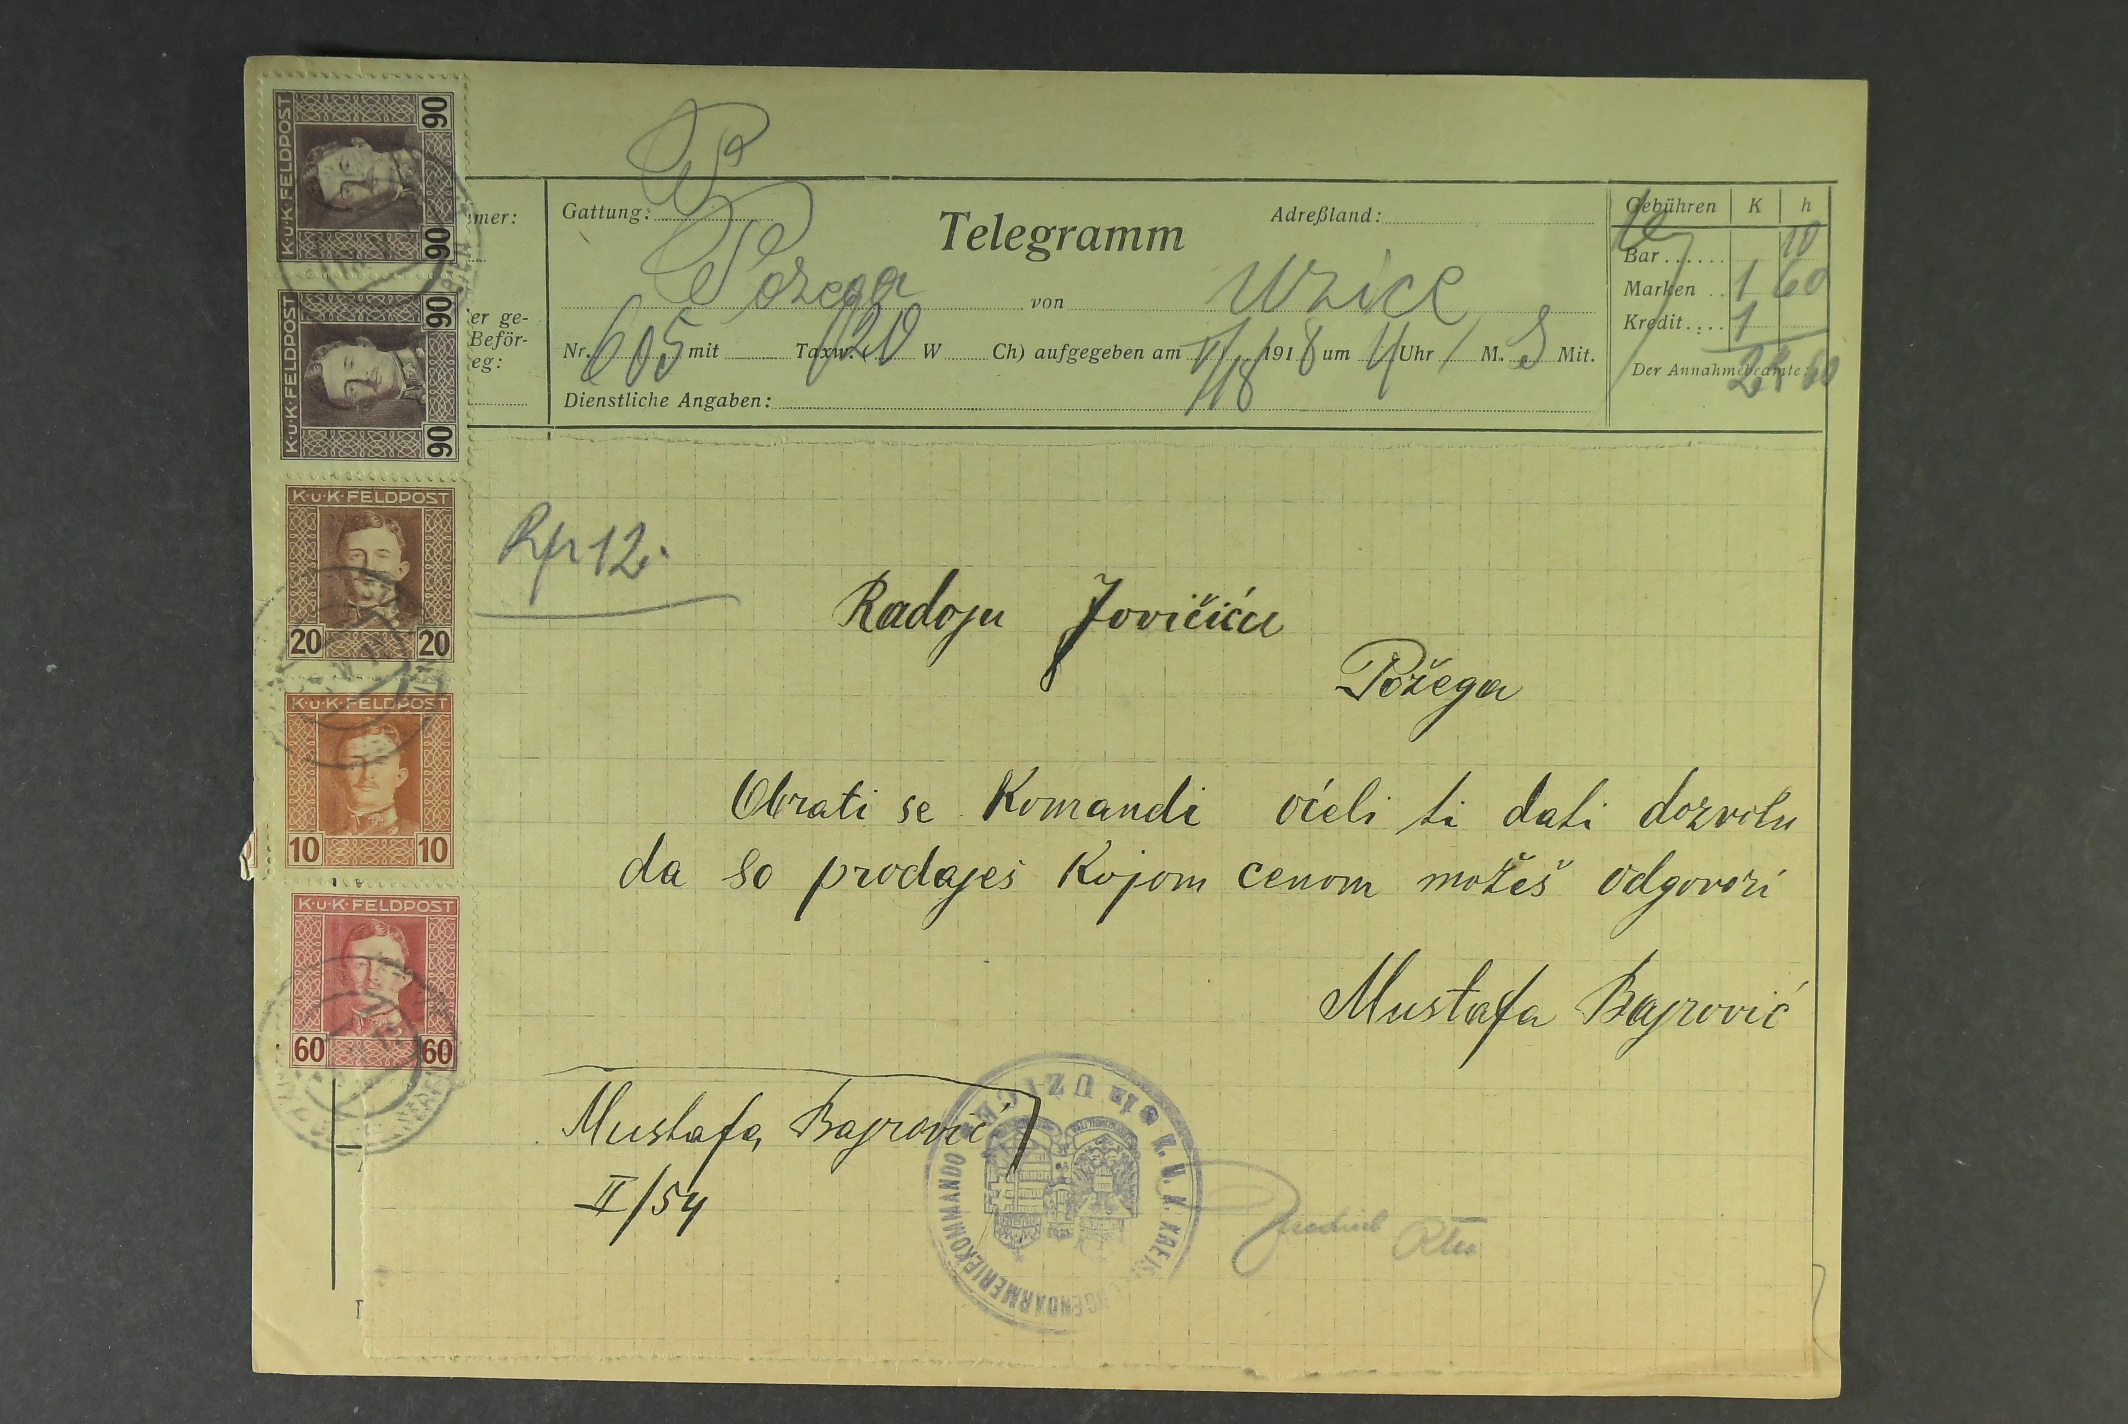 K·u·K·FELDPOST
90 90
K·u·K·FELDPOST
90 90
K·u·K·FELDPOST
20 20
K·u·K·FELDPOST
10 10
K·u·K·FELDPOST
60 60
mer:
er ge-
Beför-
eg:
Gattung:
Telegramm
Adreßland:
Požega von Uzice
Nr. 605 mit Taxw. 20 W Ch) aufgegeben am 1/18 1918 um 4 Uhr / M. S Mit.
Dienstliche Angaben:
Gebühren K h
10
Bar
Marken 1 60
Kredit 1
Der Annahmebeamte:
2 60
Rp 12.
Radoju Jovičiću
Požega
Obrati se Komandi oćeli ti dati dozvolu
da so prodaješ kojom cenom možeš odgovori
Mustafa Bajrović
Mustafa Bajrović
II/54
K. U. K. KREIS GENDARMERIEKOMMANDO in UŽICE